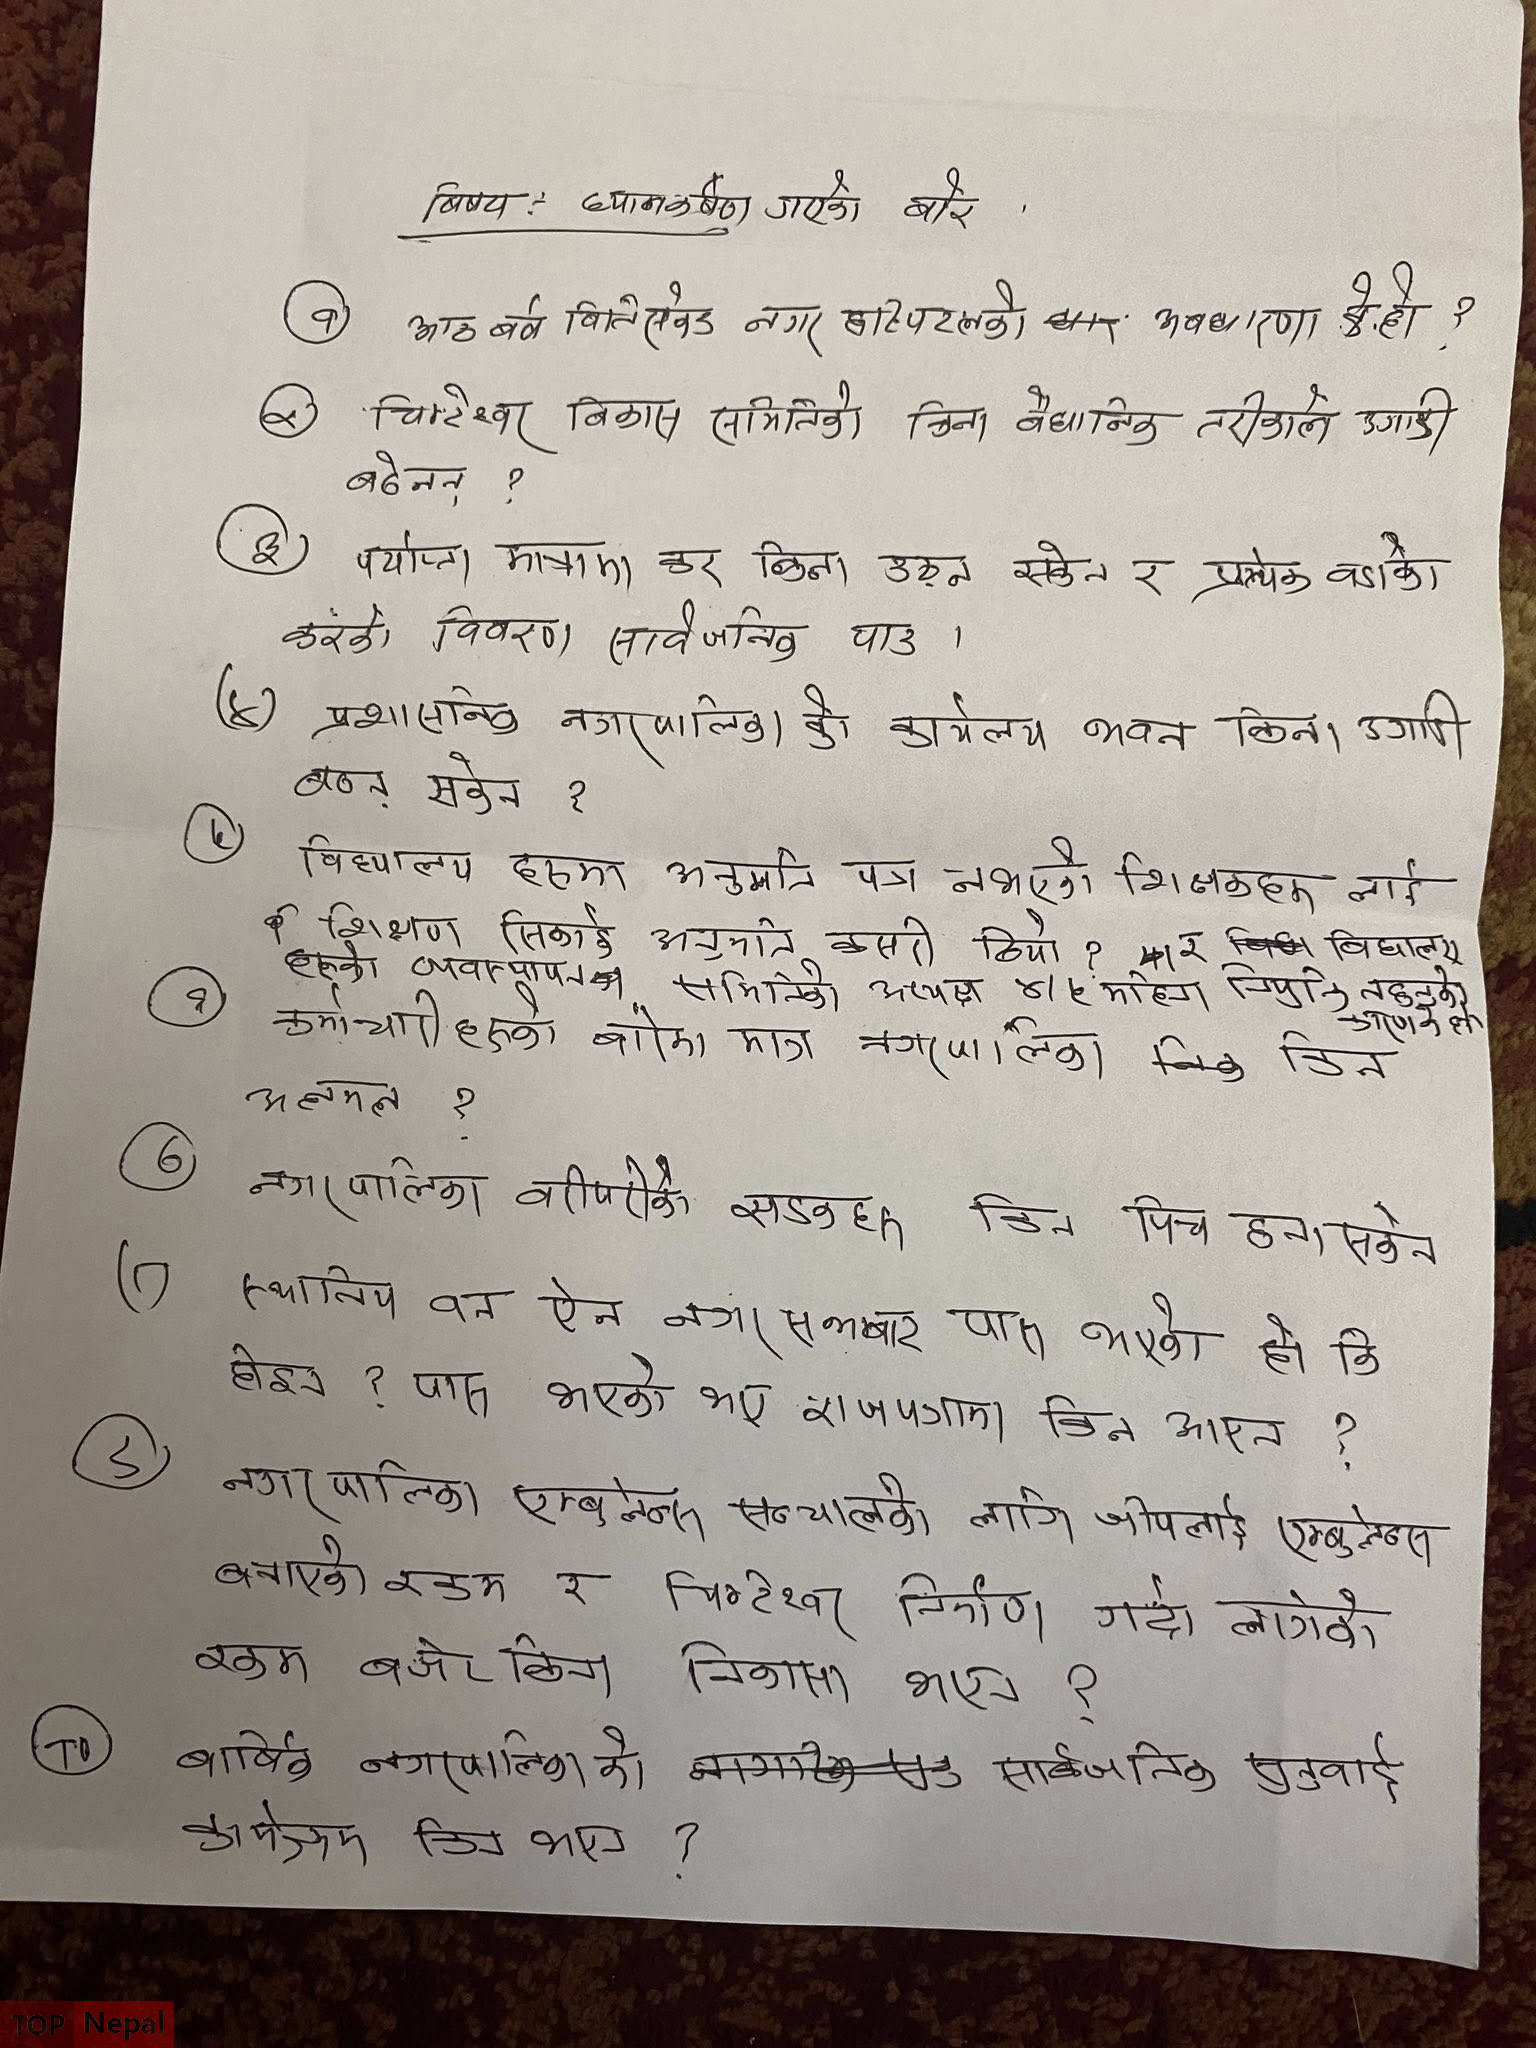 विषय :- ध्यानकर्षण गएको बारे ।
१ आठ बर्ष बितिसकेउ नगर हास्पिटलको अवधारणा के.हो ?
२ चिम्टेश्वर बिकास समितिको किना बैधानिक तरीकाले अगाडी
बढेनन् ?
३ पर्याप्ता मात्रामा कर किना उठ्न सकेन र प्रत्येक वडाको
करको विवरण सार्वजनिक पाउ ।
४ प्रशासनिक नगरपालिका को कार्यलय भवन किना अगाडी
बढ्न सकेन ?
५ विद्यालय हरुमा अनुमति पत्र नभएको शिक्षकहरु लाई
शिक्षण सिकाई अनुमति कसरी दियो ? र विद्यालय
हरुको व्यवस्थापन समितिको अध्यक्ष ४।५ महिना नियुक्ति नहुनुको
कारण के हो
६ कर्मचारीहरुको बारेमा मात्र नगरपालिका किन
अलमल ?
७ नगरपालिका वरीपरीकै सडकहरु किन पिच हुना सकेन
८ स्थानिय वन ऐन नगर सभाबाट पास भएको हो कि
होइन ? पास भएको भए राजपत्रामा किन आएन ?
९ नगरपालिका एम्बुलेन्स सन्चालको लागि जीपलाई एम्बुलेन्स
बनाएको रकम र चिम्टेश्वर निर्माण गर्दा लागेको
रकम बजेट किना निकासा भएन ?
१० बार्षिक नगरपालिका को सार्वजनिक सुनुवाई
कार्यक्रम किन भएन ?
TOP Nepal